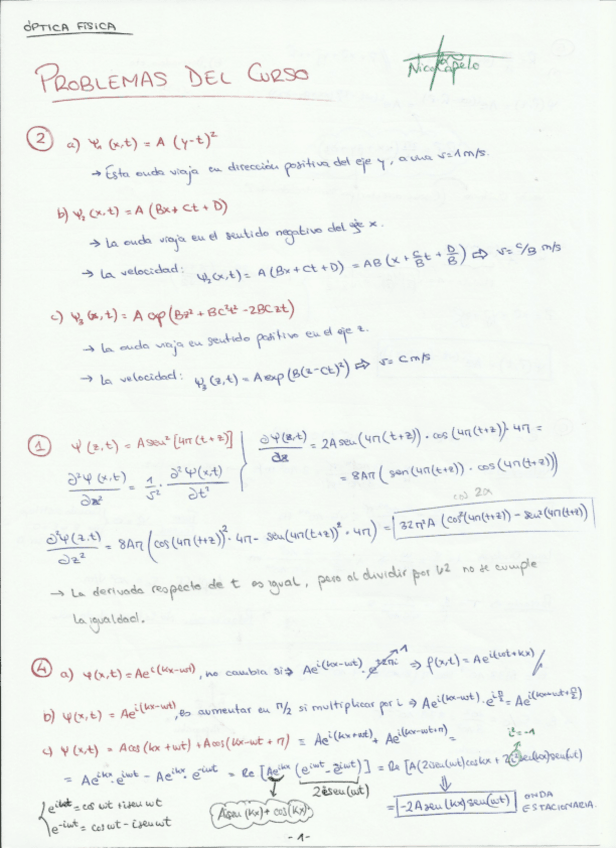 ÓPTICA FÍSICA
Nico Capelo
PROBLEMAS DEL CURSO
② a) Ψ₁(x,t) = A (y-t)²
→ Esta onda viaja en dirección positiva del eje y, a una v=1 m/s.
b) Ψ₂(x,t) = A (Bx + Ct + D)
→ La onda viaja en el sentido negativo del eje x.
→ La velocidad: Ψ₂(x,t) = A (Bx + Ct + D) = AB (x + C/B t + D/B) ⇒ v = C/B m/s
c) Ψ₃(x,t) = A exp (Bz² + BC²t² - 2BCzt)
→ La onda viaja en sentido positivo en el eje z.
→ La velocidad: Ψ₃(z,t) = A exp (B(z-Ct)²) ⇒ v = C m/s
① Ψ(z,t) = A sen² [4π(t+z)]
∂Ψ(z,t)/∂z = 2A sen(4π(t+z)) · cos(4π(t+z)) · 4π =
∂²Ψ(x,t)/∂x² = 1/v² · ∂²Ψ(x,t)/∂t²
= 8Aπ (sen(4π(t+z)) · cos(4π(t+z)))
cos 2a
∂²Ψ(z,t)/∂z² = 8Aπ (cos(4π(t+z))² · 4π - sen(4π(t+z))² · 4π) = 32π²A (cos²(4π(t+z)) - sen²(4π(t+z)))
→ La derivada respecto de t es igual, pero al dividir por v2 no se cumple
la igualdad.
④ a) Ψ(x,t) = Ae^i(kx-wt), no cambia si ⇒ Ae^i(kx-wt) · e^2πi 1 ⇒ f(x,t) = Ae^i(wt+kx)
b) Ψ(x,t) = Ae^i(kx-wt), es aumentar en π/2 si multiplicar por i ⇒ Ae^i(kx-wt) · e^iπ/2 = Ae^i(kx-wt+π/2)
c) Ψ(x,t) = A cos(kx + wt) + A cos(kx - wt + π) = Ae^i(kx+wt) + Ae^i(kx-wt+π) =
i² = -1
= Ae^ikx · e^iwt - Ae^ikx · e^-iwt = Re [Ae^ikx (e^iwt - e^-iwt)] = Re [A(2i sen(wt) cos kx + 2i² sen(kx) sen(wt)]
2i sen(wt)
e^iwt = cos wt + i sen wt
e^-iwt = cos wt - i sen wt
A i sen(kx) + cos(kx)
= -2A sen(kx) sen(wt)
ONDA
ESTACIONARIA.
- 1 -